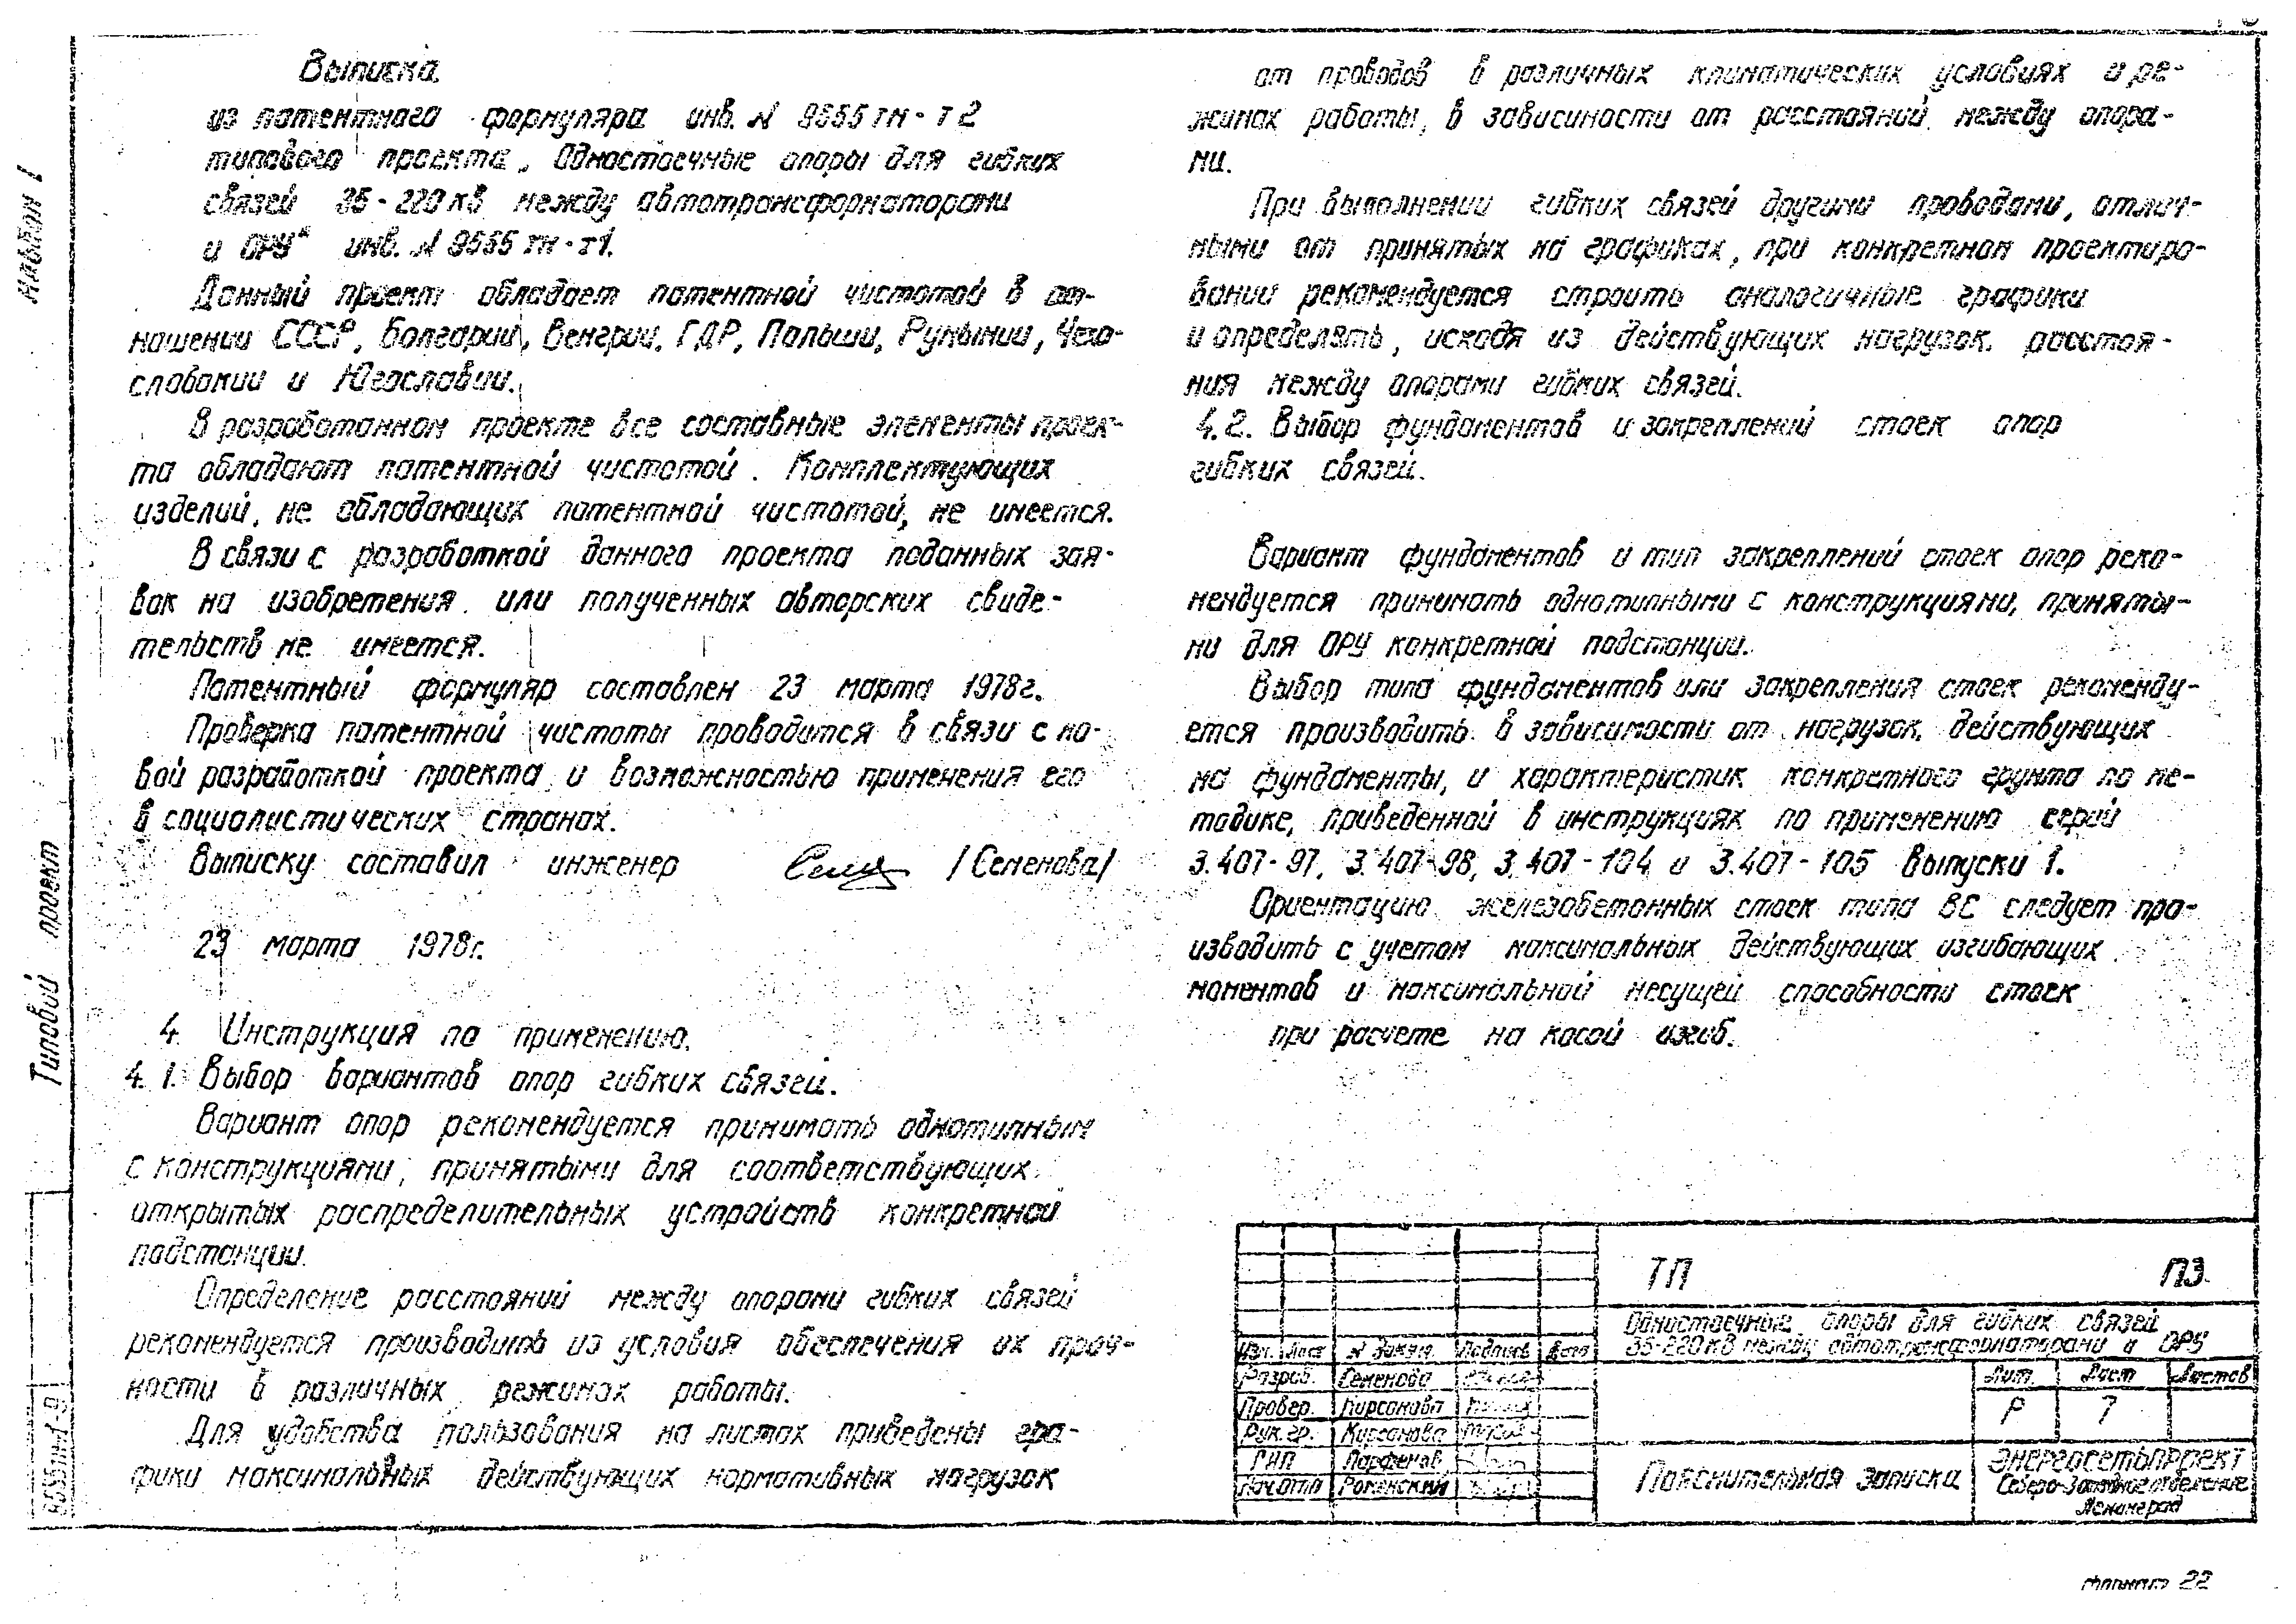 Выписка
из патентного формуляра инв. N 9555 тм - т 2
типового проекта „Одностоечные опоры для гибких
связей 35 - 220 кв между автотрансформаторами
и ОРУ" инв. N 9555 тм - т1.
Данный проект обладает патентной чистотой в от-
ношении СССР, Болгарии, Венгрии, ГДР, Польши, Румынии, Чехо-
словакии и Югославии.
В разработанном проекте все составные элементы проек-
та обладают патентной чистотой. Комплектующих
изделий, не обладающих патентной чистотой, не имеется.
В связи с разработкой данного проекта поданных зая-
вок на изобретения или полученных авторских свиде-
тельств не имеется.
Патентный формуляр составлен 23 марта 1978г.
Проверка патентной чистоты проводится в связи с но-
вой разработкой проекта и возможностью применения его
в социалистических странах.
Выписку составил инженер /Семенова/
23 марта 1978г.
4 Инструкция по применению.
4. 1. Выбор вариантов опор гибких связей.
Вариант опор рекомендуется принимать однотипным
с конструкциями, принятыми для соответствующих
открытых распределительных устройств конкретной
подстанции.
Определение расстояний между опорами гибких связей
рекомендуется производить из условия обеспечения их проч-
ности в различных режимах работы.
Для удобства пользования на листах приведены гра-
фики максимальных действующих нормативных нагрузок
от проводов в различных климатических условиях и ре-
жимах работы, в зависимости от расстояний между опора-
ми.
При выполнении гибких связей другими проводами, отлич-
ными от принятых на графиках, при конкретном проектиро-
вании рекомендуется строить аналогичные графики
и определять, исходя из действующих нагрузок, расстоя-
ния между опорами гибких связей.
4. 2. Выбор фундаментов и закреплений стоек опор
гибких связей.
Вариант фундаментов и тип закреплений стоек опор реко-
мендуется принимать однотипными с конструкциями, приняты-
ми для ОРУ конкретной подстанции.
Выбор типа фундаментов или закрепления стоек рекоменду-
ется производить в зависимости от нагрузок, действующих
на фундаменты, и характеристик конкретного грунта по ме-
тодике, приведенной в инструкциях по применению серий
3.407-97, 3.407-98, 3.407-104 и 3.407-105 Выпуски 1.
Ориентацию железобетонных стоек типа ВС следует про-
изводить с учетом максимальных действующих изгибающих
моментов и максимальной несущей способности стоек
при расчете на косой изгиб.
Альбом I
Типовой проект
ТП ПЗ
Одностоечные опоры для гибких связей
35-220 кв между автотрансформаторами и ОРУ
Изм. Лист N докум. Подпись Дата
Разраб. Семенова
Провер. Кирсанова
Рук. гр. Кирсанова
ГИП Парфенов
Нач. отд Роменский
Лит. Лист Листов
Р 7
Пояснительная записка
Энергосетьпроект
Северо-Западное отделение
Ленинград
Формат 22